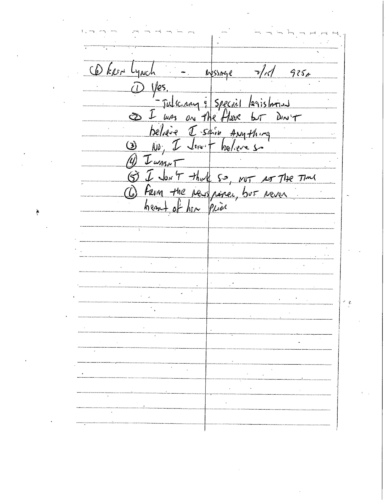 Lynch - message 925A
① Yes.
- Judiciary & Special legislation
② I was on the floor but don't
believe I said anything
③ No, I don't believe so
④ I wasn't
⑤ I don't think so, not at the time
⑥ From the newspaper, but never
heard of him prior